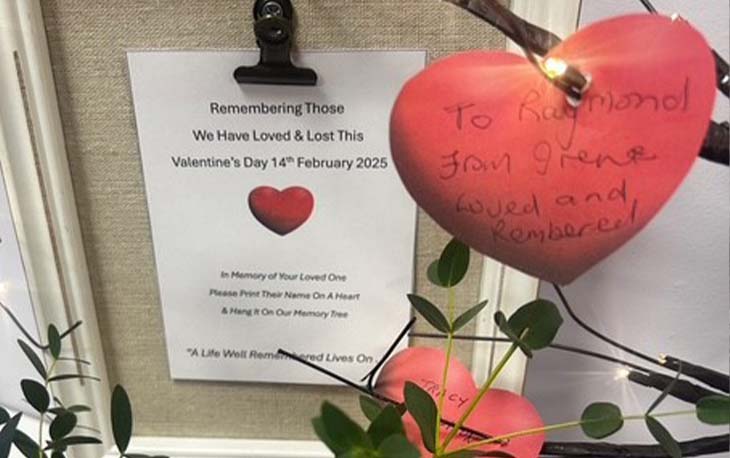 Remembering Those
We Have Loved & Lost This
Valentine's Day 14th February 2025
In Memory of Your Loved One
Please Print Their Name On A Heart
& Hang It On Our Memory Tree
"A Life Well Remembered Lives On
To Raymond
From Irene
Loved and
Rembered
TRACY